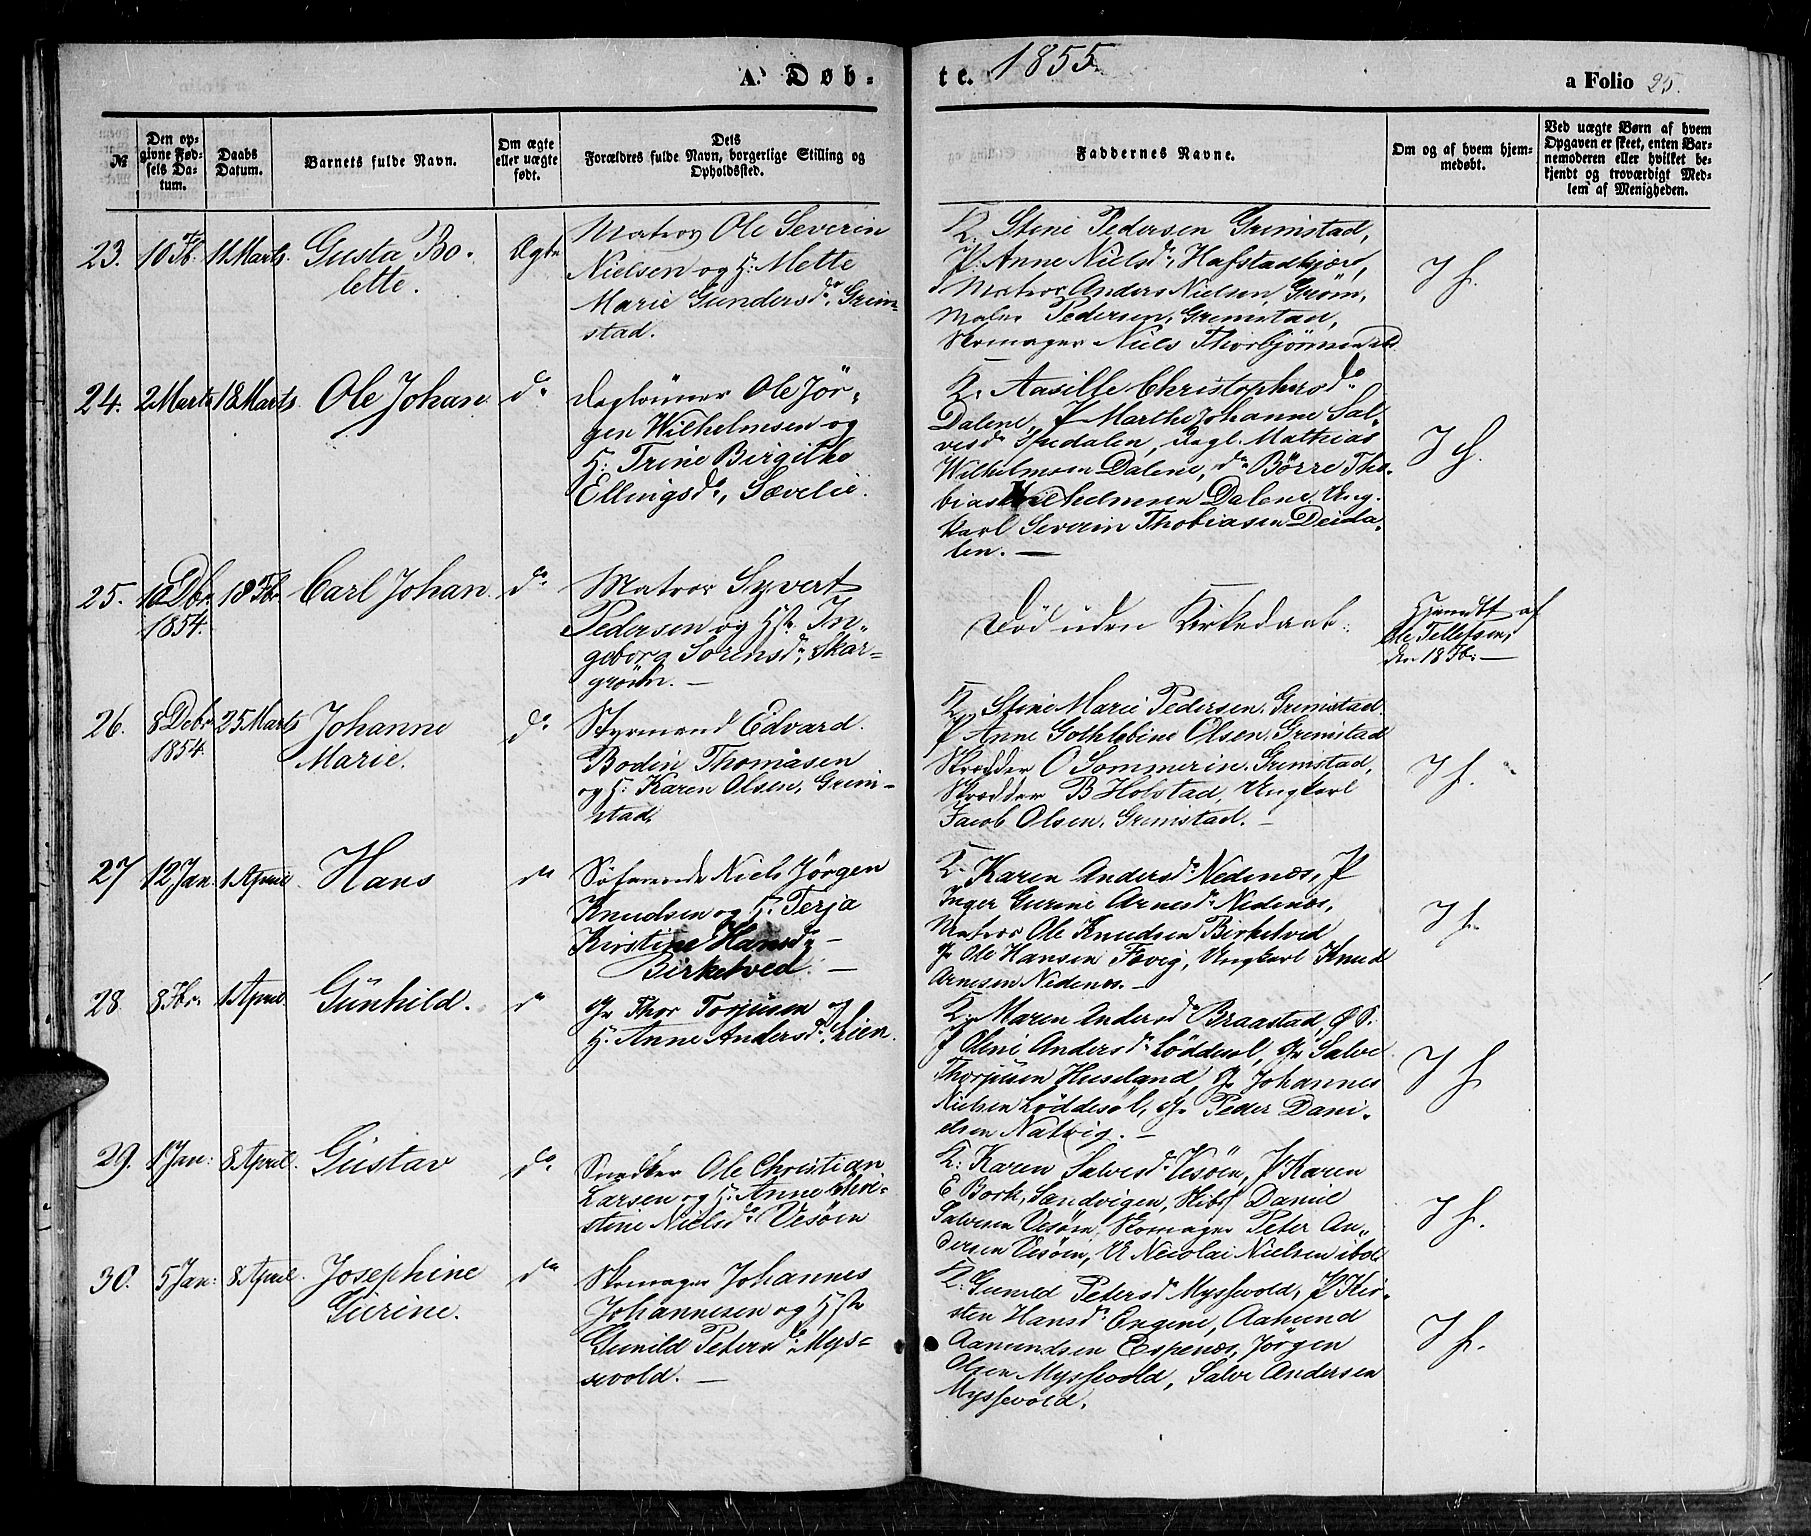 A. Døb-
te. 1855
a Folio 25.
№
Den op-
givne Fød-
sels Da-
tum.
Daabs
Datum.
Barnets fulde Navn.
Om ægte
eller uægte
født.
Dets
Forældres fulde Navn, borgerlige Stilling og
Opholdssted.
Faddernes Navne.
Om og af hvem hjem-
medøbt.
Ved uægte Børn af hvem
Opgaven er skeet, enten Bar-
nemoderen eller hvilket be-
kjendt og troværdigt Med-
lem af Menigheden.
23. 10 Fb. 11 Marts. Gusta Bo-
lette.
Ægte
Matros Ole Severin
Nielsen og H: Mette
Marie Gundersd. Grim-
stad.
K: Stine Pedersen Grimstad,
P. Anne Nielsd.
Matros Anders Nielsen Grøm,
Maler Pedersen, Grimstad,
Skomager Niels Thorbjørnsen
J h.
24. 2 Marts 18 Marts. Ole Johan
do
Daglønner Ole Jør-
gen Wilhelmsen og
H: Trine Birgithe
Ellingsd., Sævelie.
K: Aasille Christophersd.
Dalene, P Marthe Johanne Sal-
vesd. dagl. Mathias
Wilhelmsen Dalene, do Börre Tho-
bias Wilhelmsen Dalene, Ung.
Karl Severin Thobiasen Deida-
len. —
J h.
25. 10 Dbr. 18 Fbr. Carl Johan
1854.
do
Matros Syvert
Pedersen og Hst. In-
geborg Sørensd., Skar-
grøm. —
Död uden Kirkedaab.
Hjemdbt af
Ole Tellefsen,
den 18 Fb. —
26. 8 Debr 25 Marts Johanne
1854 Marie.
do
Styrmand Edvard
Bodin Thomasen
og H: Karen Olsen, Grim-
stad.
K. Stine Marie Pedersen, Grimstad.
P Anne Gothlobine Olsen, Grimstad
Skrædder O Sommerin, Grimstad,
Skrædder B Holstad, Ungkarl
Jacob Olsen, Grimstad. —
J h.
27 12 Jan. 1 April Hans
do
Söfarende Niels Jørgen
Knudsen og H. Terja
Kirstine Hansd. —
Birketved. —
K. Karen Andersd. Nedenæs, P
Inger Gunne Arnesd. Nedenæs,
Matros Ole Knudsen Birketved
Gr Ole Hansen Fevig, Ungkarl Knud
Arnesen Nedenæs. —
J h.
28 8 Fbr. 1 April. Günhild.
do
Gr Thor Torjusen og
H. Anne Andersd. Lien.
K. Maren Andersd. Braastad, Ø S:
P Oline Andersd. Löddesöl, Gr Salve
Thorjusen Huseland, Gr Johannes
Nielsen Löddesöl, Gr Peder Dani-
elsen Natvig. —
J h.
29. 1 Jan: 8 April. Güstav
do
Snedker Ole Christian
Larsen og H: Anne Chri-
stine Nielsd. Vesøen
K: Karen Salvesd. Vesøen, P Karen
E Bork, Sandvigen, Daniel
Salvesen Vesøen, Skomager Peter An-
dersen Vesøen, U Nicolai Nielsen ibd
J h.
30. 5 Jan: 8 April. Josephine
Gürine.
do
Skomager Johannes
Johannesen og Hst.
Gunild Petersd. Mys-
sevold. —
K: Gunild Petersd. Myssevold, P Kir-
sten Hansd. Engene, Aamund
Aamundsen Espenæs, Jørgen
Olsen Myssevold, Salve Andersen
Myssevold.
J h.